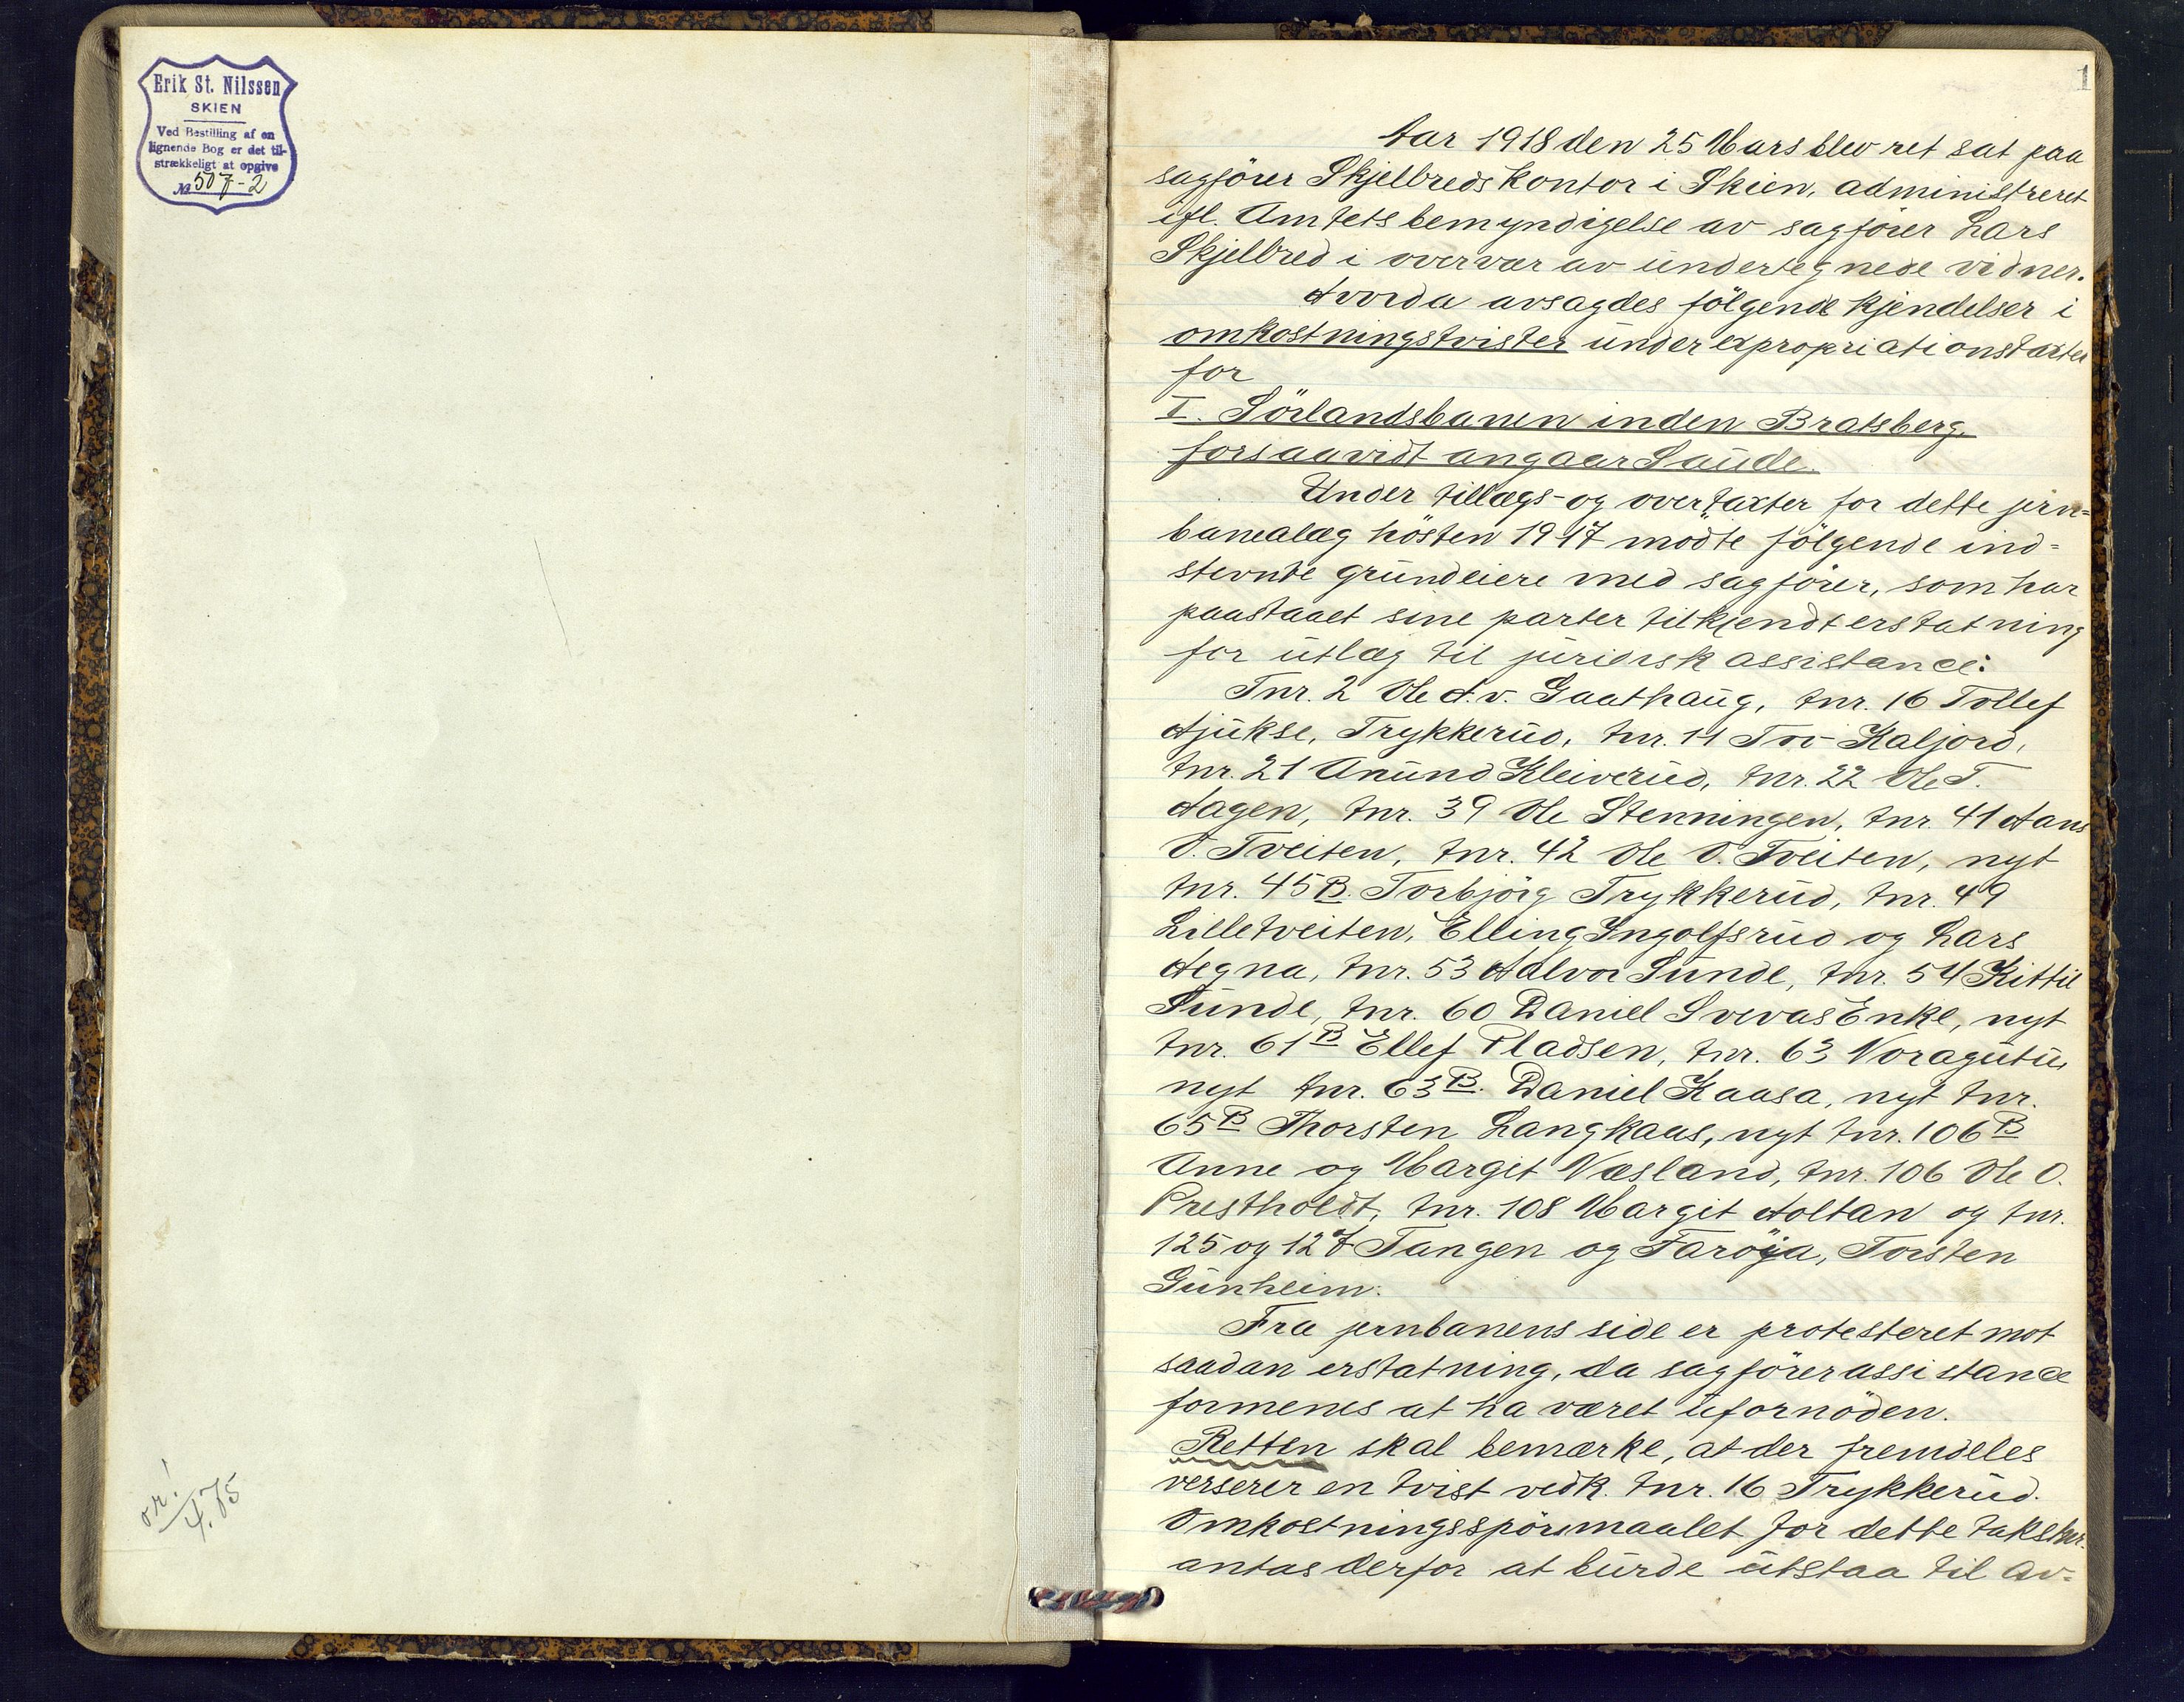 Erik St. Nilssen
SKIEN
Ved Bestilling af en
lignende Bog er det til-
strækkeligt at opgive
№ 507-2
or!
4.75
1
Aar 1918 den 25 Mars blev ret sat paa
sagförer Skjelbreds kontor i Skien, administreret
ifl. Amtets bemyndigelse av sagförer Lars
Skjelbred i overvær av undertegnede vidner.
Hvorda avsagdes fölgende kjendelser i
omkostningstvister under expropriationstaxter
for
I. Sörlandsbanen inden Bratsberg,
forsaavidt angaar Saude.
Under tillægs- og overtaxter for dette jern=
baneanlæg hösten 1917 mödte fölgende ind=
stevnte grundeiere med sagförer, som har
paastaaet sine parter tilkjendt erstatning
for utlæg til juridisk assistance:
Tnr. 2 Ole H. v. Gaathaug, tnr. 16 Tollef
Hjukse, Trykkerud, tnr. 11 Tov Kaljord,
tnr. 21 Anund Kleiverud, tnr. 22 Ole T.
Hagen, tnr. 39 Ole Stenningen, tnr. 41 Hans
O. Tveiten, tnr. 42 Ole O. Tveiten, nyt
tnr. 45 B. Torbjörg Trykkerud, tnr. 49
Lilletveiten, Elling Ingolfsrud og Lars
Hegna, tnr. 53 Halvor Sunde, tnr. 54 Kittil
Sunde, tnr. 60 Daniel Svevas Enke, nyt
tnr. 61 B Ellef Pladsen, tnr. 63 Noragutu,
nyt tnr. 63 B. Daniel Kaasa, nyt tnr.
65 B Thorsten Langkaas, nyt tnr. 106 B
Anne og Margit Næsland, tnr. 106 Ole O.
Prestholdt, tnr. 108 Margit Holtan og tnr.
125 og 127 Tangen og Faröya, Torsten
Gunheim.
Fra jernbanens side er protesteret mot
saadan erstatning, da sagförerassistance
formenes at ha været ufornöden.
Retten skal bemærke, at der fremdeles
verserer en tvist vedk. tnr. 16 Trykkerud.
Omkostningsspörsmaalet for dette takstnr.
antas derfor at burde utstaa til av=